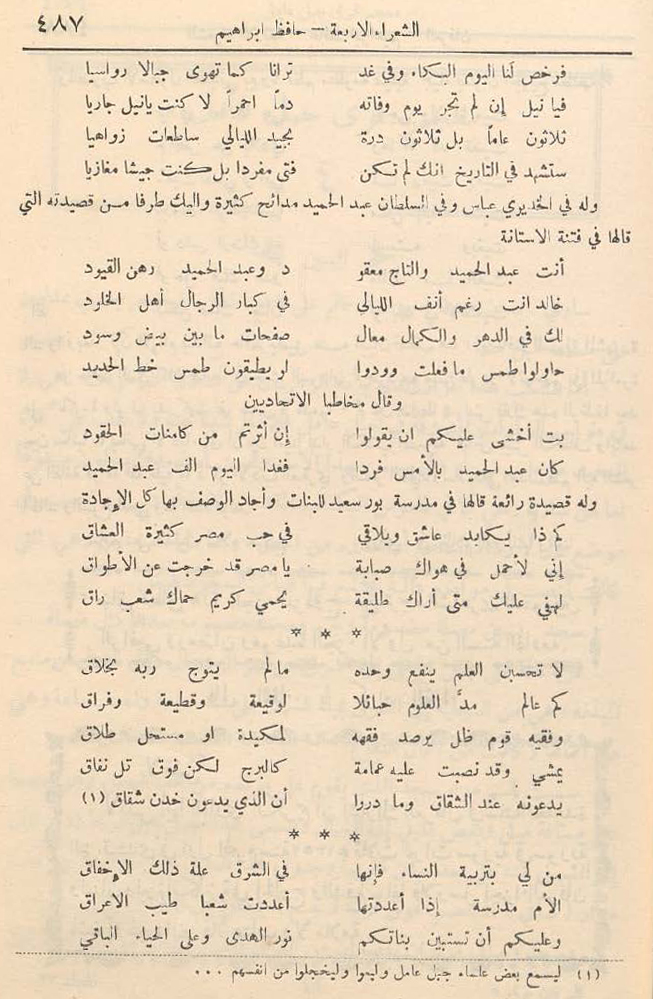 الشعراء الاربعة – حافظ ابراهيم ٤٨٧
فرخص لنا اليوم البكاء وفي غد ترانا كما تهوى جبالا رواسيا
فيا نيل إن لم تجر يوم وفاته دماً احمراً لا كنت يانيل جاريا
ثلاثون عاماً بل ثلاثون درة بجيد الليالي ساطعات زواهيا
ستشهد في التاريخ انك لم تكن فتى مفردا بل كنت جيشا مغازيا
وله في الخديوي عباس وفي السلطان عبد الحميد مدائح كثيرة واليك طرفا من قصيدته التي
قالها في فتنة الاستانة
أنت عبد الحميد والتاج معقو د وعبد الحميد رهن القيود
خالد انت رغم أنف الليالي في كبار الرجال أهل الخلود
لك في الدهر والكمال معال صفحات ما بين بيض وسود
حاولوا طمس ما فعلت وودوا لو يطيقون طمس خط الحديد
وقال مخاطبا الاتحاديين
بت أخشى عليكم ان يقولوا إن أثرتم من كامنات الحقود
كان عبد الحميد بالأمس فردا فغدا اليوم الف عبد الحميد
وله قصيدة رائعة قالها في مدرسة بور سعيد للبنات وأجاد الوصف بها كل الإجادة
كم ذا يكابد عاشق ويلاقي في حب مصر كثيرة العشاق
إني لأحمل في هواك صبابة يا مصر قد خرجت عن الأطواق
لهفي عليك متى أراك طليقة يحمي كريم حماك شعب راق
* * *
لا تحسبن العلم ينفع وحده مالم يتوج ربه بخلاق
كم عالم مدَّ العلوم حبائلا لوقيعة وقطيعة وفراق
وفقيه قوم ظل يرصد فقهه لمكيدة او مستحل طلاق
يمشي وقد نصبت عليه عمامة كالبرج لكن فوق تل نفاق
يدعونه عند الشقاق وما دروا أن الذي يدعون خدن شقاق (١)
* * *
من لي بتربية النساء فإنها في الشرق علة ذلك الإخفاق
الأم مدرسة إذا أعددتها أعددت شعبا طيب الاعراق
وعليكم أن تستبين بناتكم نور الهدى وعلى الحياء الباقي
(١) ليسمع بعض علماء جبل عامل وليعوا وليخجلوا من انفسهم ...